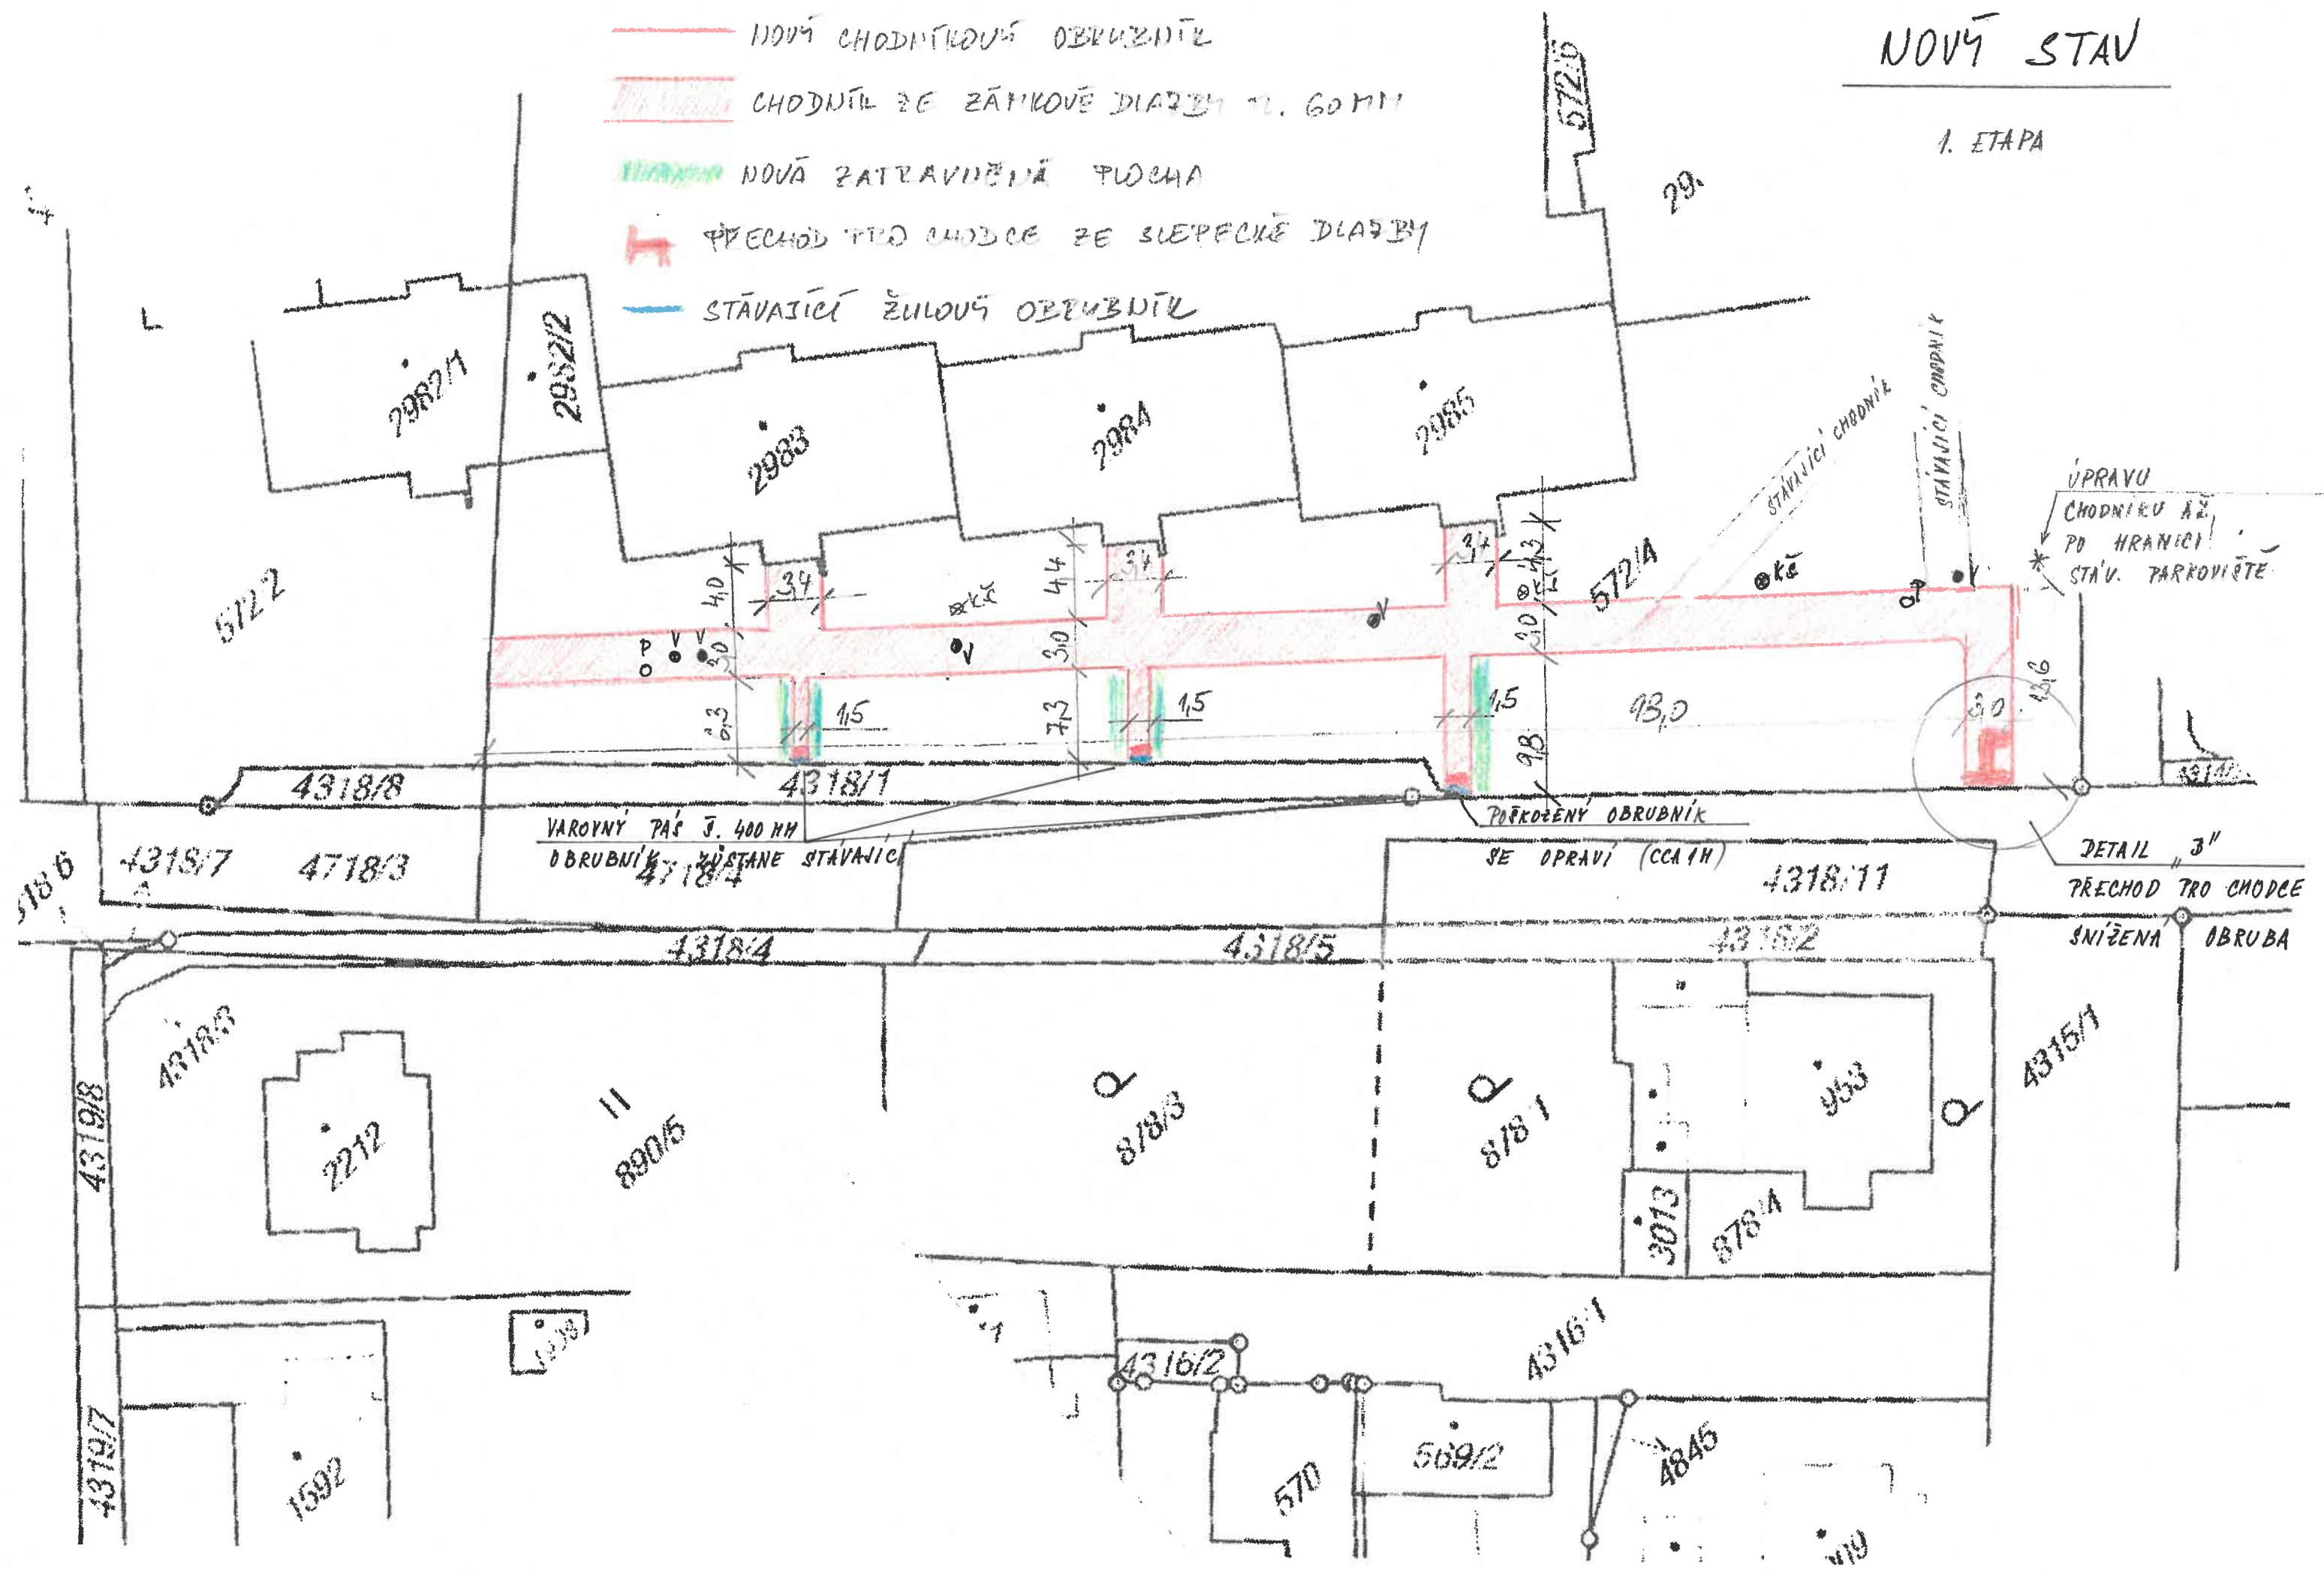 NOVÝ CHODNÍKOVÝ OBRUBNÍK
CHODNÍK ZE ZÁMKOVÉ DLAŽBY TL. 60 MM
NOVÁ ZATRAVNĚNÁ PLOCHA
PŘECHOD PRO CHODCE ZE SLEPECKÉ DLAŽBY
STÁVAJÍCÍ ŽULOVÝ OBRUBNÍK
NOVÝ STAV
1. ETAPA
572/6
29.
2982/1
2982/2
2983
2984
2985
STÁVAJÍCÍ CHODNÍK
STÁVAJÍCÍ CHODNÍK
ÚPRAVU
CHODNÍKU AŽ
PO HRANICI
STÁV. PARKOVIŠTĚ
572/4
KŠ
KŠ
4,0
3,4
4,4
3,4
3,4
4,3
P
V
V
3,0
V
3,0
V
3,0
V
6,3
1,5
7,3
1,5
1,5
9,8
3,0
13,6
4318/8
4318/1
VAROVNÝ PÁS Š. 400 MM
OBRUBNÍK ZŮSTANE STÁVAJÍCÍ
POŠKOZENÝ OBRUBNÍK
SE OPRAVÍ (CCA 1M)
DETAIL „3"
PŘECHOD PRO CHODCE
SNÍŽENÁ OBRUBA
4318/7
4718/3
4718/4
4318/11
4318/4
4318/5
4318/2
4318/3
4319/8
2212
890/5
878/3
878/1
953
4315/1
3013
878/4
4316/1
4316/2
4319/7
1592
570
569/2
4845